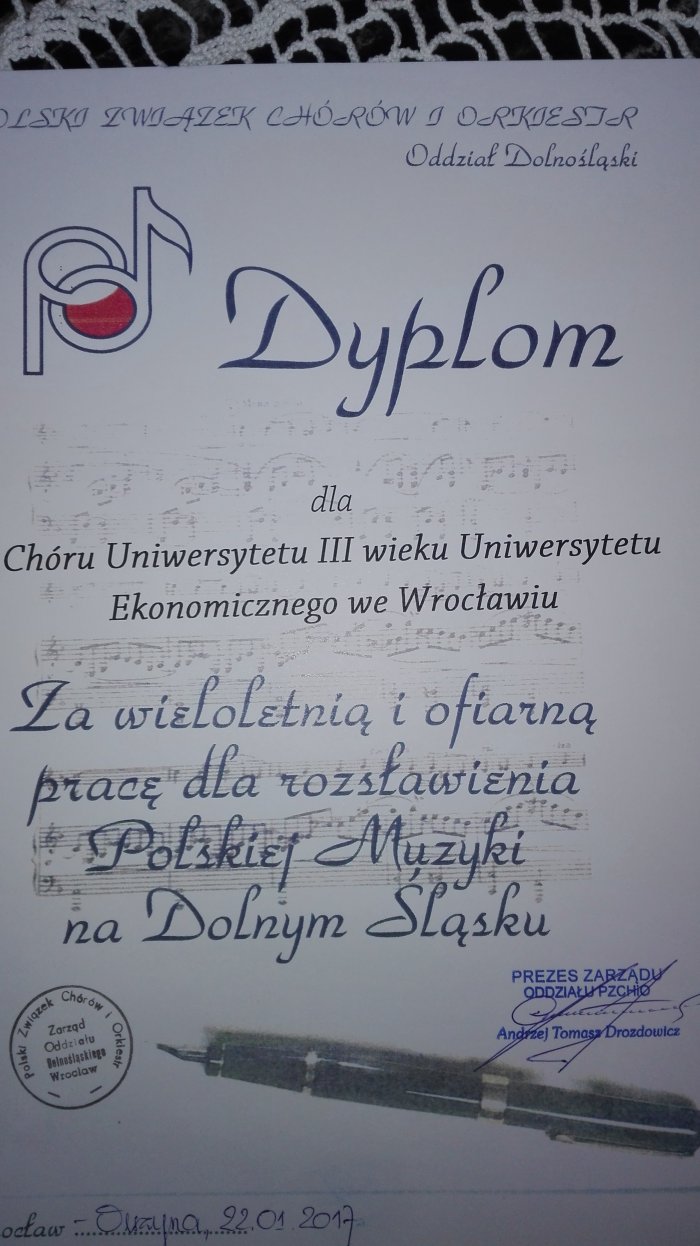 OLSKI ZWIĄZEK CHÓRÓW I ORKIESTR
Oddział Dolnośląski
Dyplom
dla
Chóru Uniwersytetu III wieku Uniwersytetu
Ekonomicznego we Wrocławiu
Za wieloletnią i ofiarną
pracę dla rozsławienia
Polskiej Muzyki
na Dolnym Śląsku
PREZES ZARZĄDU
ODDZIAŁU PZCHiO
Andrzej Tomasz Drozdowicz
Polski Związek Chórów i Orkiestr
Zarząd
Oddziału
Dolnośląskiego
Wrocław
ocław - 22.01.2017